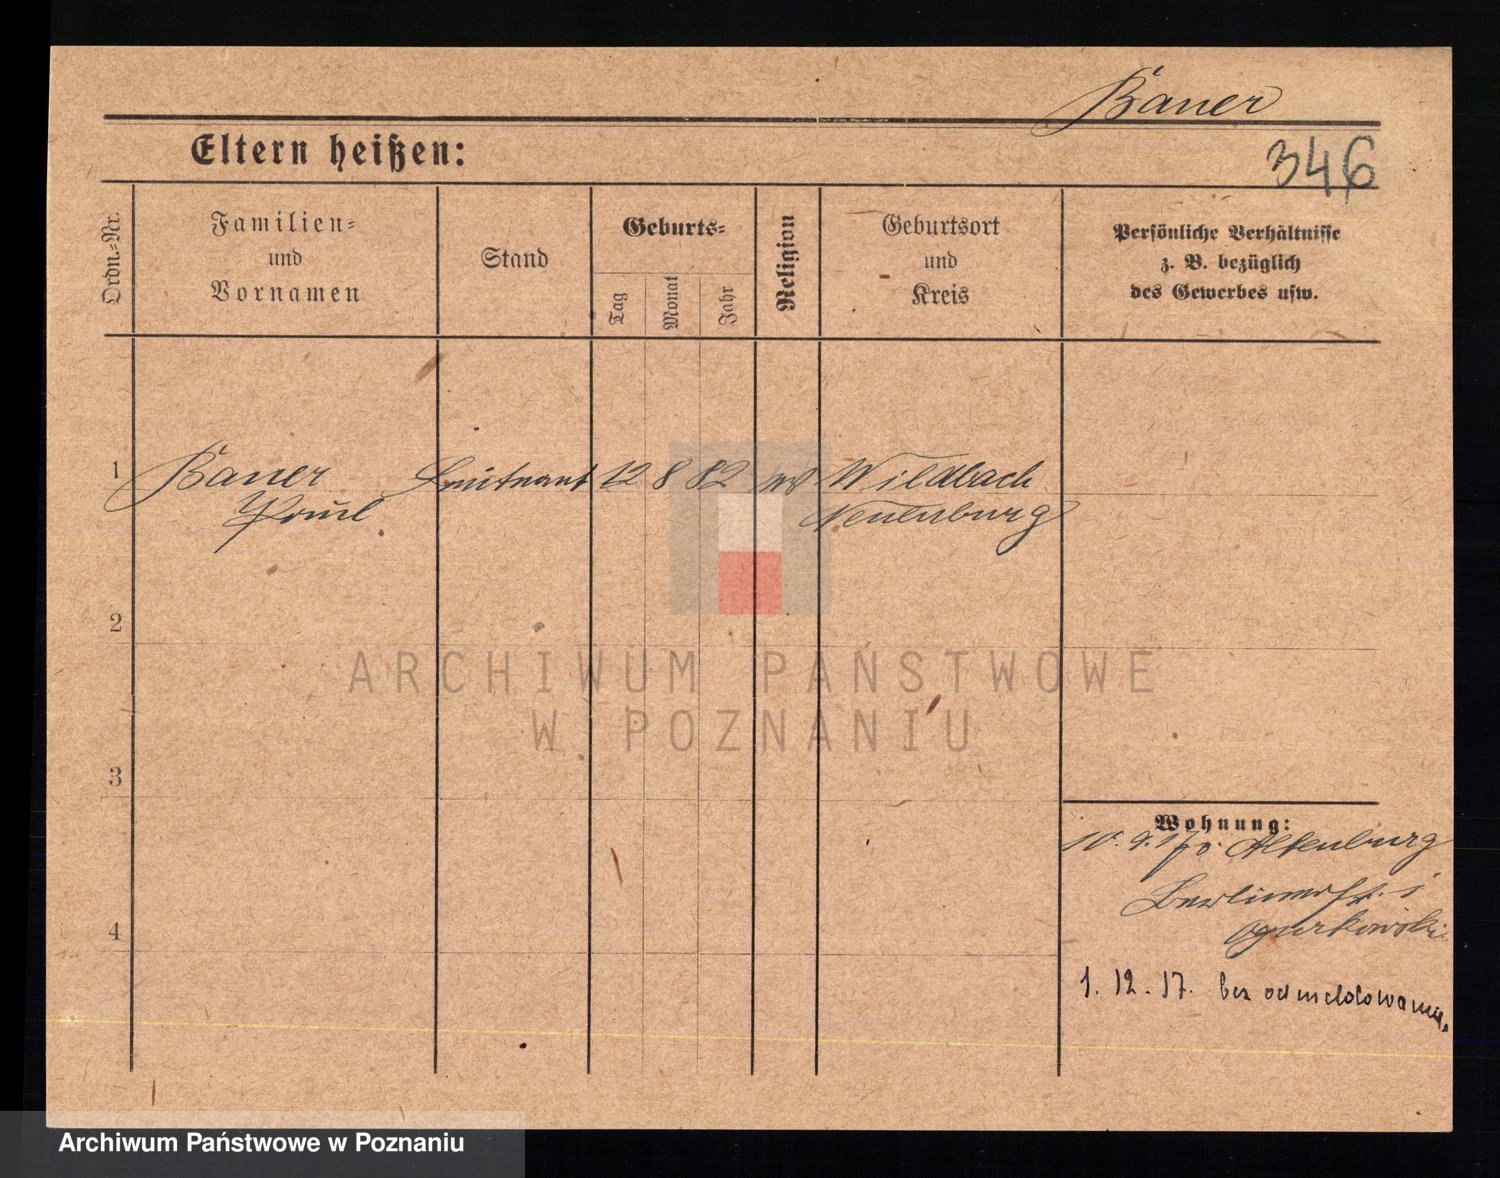 Bauer
346
Eltern heißen:
Ordn.-Nr.
Familien-
und
Vornamen
Stand
Geburts-
Tag
Monat
Jahr
Religion
Geburtsort
und
Kreis
Persönliche Verhältnisse
z. B. bezüglich
des Gewerbes usw.
1
Bauer Leutnant 12 8 82 Wildbach
Paul Neuenburg
2
ARCHIWUM PAŃSTWOWE
W POZNANIU
3
Wohnung:
10. 9. 17 Altenburg
Berlinerstr.
Ogurkowski
4
1. 12. 17. bez odmeldowania.
Archiwum Państwowe w Poznaniu